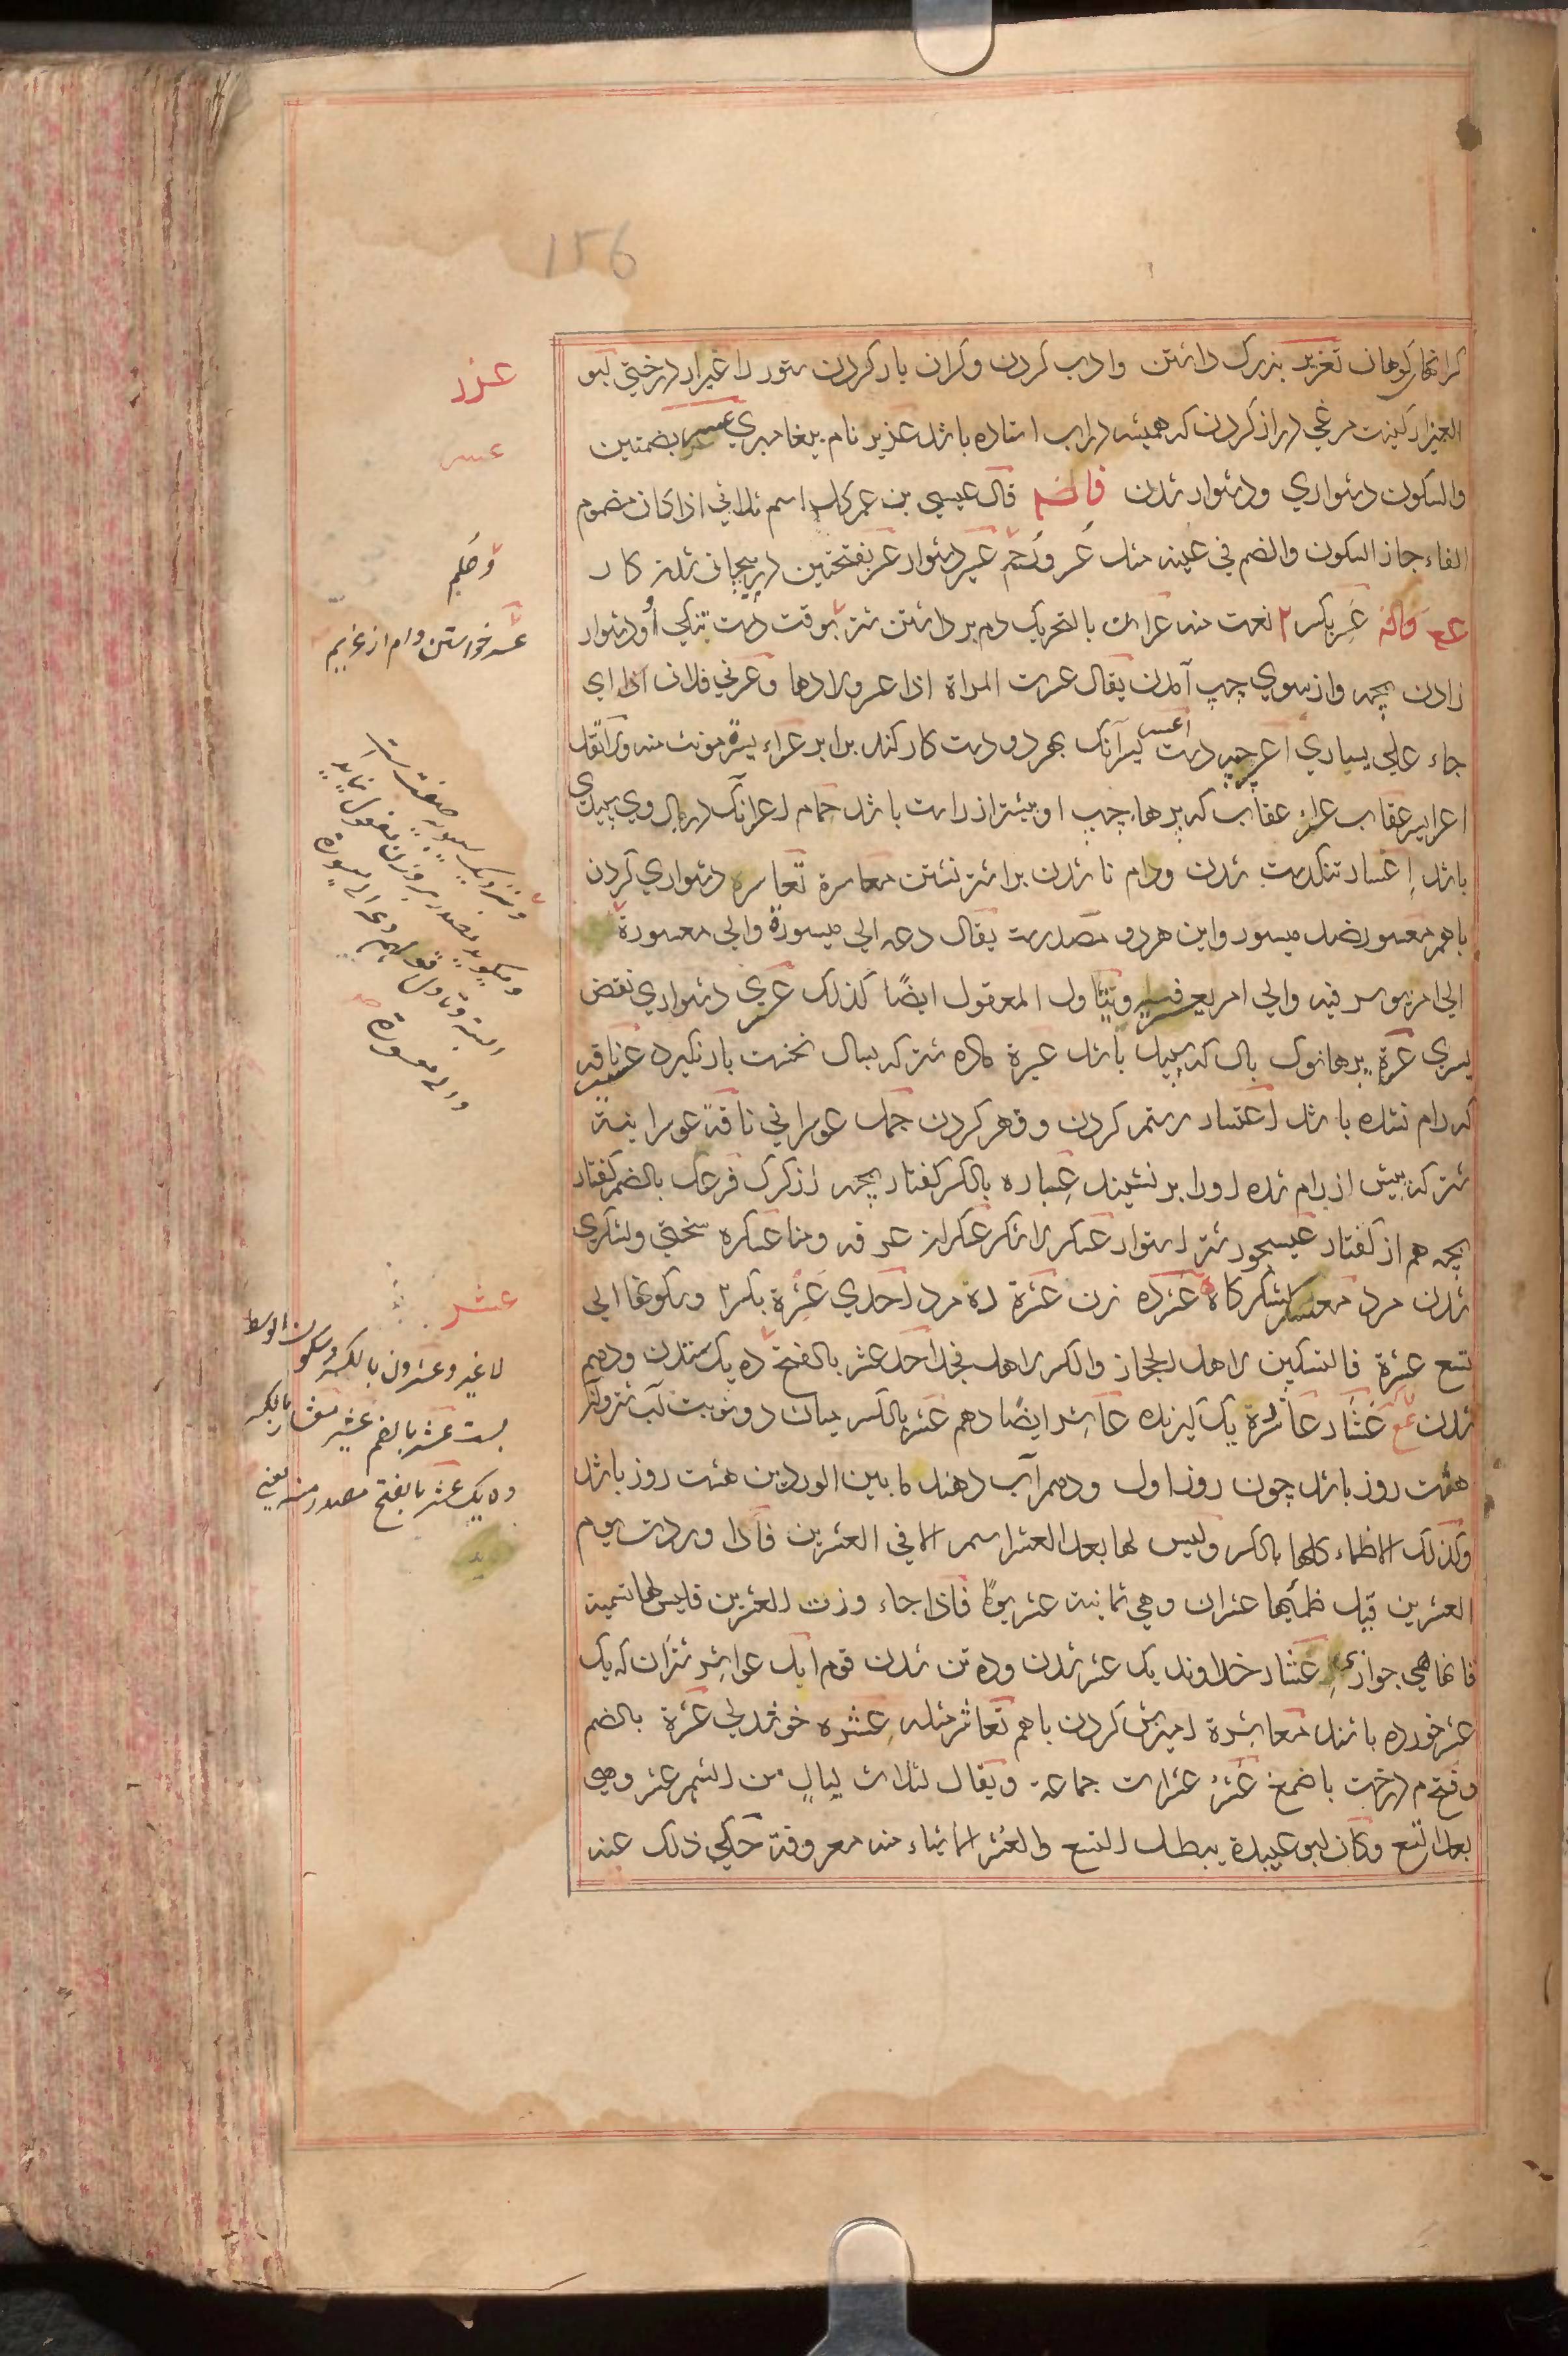 156
كرانهار كوهان تعزير بزرك داشتن وادب كردن وكران بار كردن ستور را عيزار درختي ابو
العيزار كنيت مرغي دراز كردن كه هميشه در اب استاده باشد عزير نام پيغامبري عسر بضمتين
والسكون دشواري ودشوار شدن قال عيسي بن عمر كل اسم ثلاثي اذا كان مضموم
الفاء جاز السكون والضم في عينه مثل عسر ورحم عسير دشوار عسر بفتحتين در پيچان شدن كار
عسر بكسر ٢ نعت منه عسران بالتحريك دم برداشتن شتر بوقت دشت تنكي ودشوار
زادن بچه واز سوي چپ آمدن يقال عسرت المراة اذا عسر ولادها وعسرني فلان اذا اي
جاء علي يساري اعسر چپ دست اعسر يسر آنك بهر دو دست كار كند برابر عسراء يسرة مونث منه ولا تقل
اعسر ايسر عقاب عسراء عقاب كه پرهاء چپ او بيشتر از راست باشد حمام اعسر انك در بال وي سپيدي
باشد اعسار تنكدست شدن ورام نا شدن براشتر نشستن معاسرة تعاسر دشواري كردن
باهم معسور ضد ميسور واين هر دو مصدرست يقال دعه الي ميسورة والي معسورة
الي امر يوسر فيه والي امر يعسر فيه ويتاول المعقول ايضا كذلك عسري دشواري نقض
يسري عسرة پرهانوك بال كه سپيد باشد عسيرة ماده شتر كه بسال نخست بار نكيرد عسير ناقه
كه رام نشده باشد اعتسار ستم كردن وقهر كردن جمل عوسراني ناقة عوسرانية
شتر كه پيش از رام شده او را بر نشينند عسباره بالكسر كفتار بچه از كرك فرعل بالضم كفتار
بچه هم از كفتار عيسجور شتر استوار عسكر لشكر عسكران عرفه ومنا عسكره سختي ولشكري
شدن مرد معسكر لشكر كاه عشرده زن عشرة ده مرد احدي عشرة بكسر ٢ وسكونها الي
تسع عشرة فالتسكين لاهل الحجاز والكسر لاهل نجد احد عشر بالفتح ده يك ستدن ودهم
شدن عشار عاشرة يك ليزنده عاشر ايضا دهم عشر بالكسر ميان دو نوبت آب شتر واكثر
هشت روز باشد چون روز اول ودهم آب دهند ما بين الوردين هشت روز باشد
وكذلك الاظماء كلها بالكسر وليس لها بعد العشر اسم الا في العشرين فاذا وردت يوم
العشرين قيل ظمئها عشران وهي ثمانية عشر يوما فاذا جاوزت العشرين فليس لها تسمية
فانما هي جوازي اعشار خداوند يك عشر شدن وده تن شدن قوم ابل عواشر شتران كه يك
عشر خورده باشند معاشرة اميزش كردن باهم تعاشر مثله عشره خوشدلي عشرة بالضم
وفتح م درخت با ضمغ عشر عشرات جماعة ويقال لثلاث ليال من الشهر عشر وهي
بعد التسع وكان ابو عبيدة يبطل التسع والعشر الا اشياء منه معروفة حكي ذلك عنه
عزر
عسر
وحلم
عسر خواستن وام از غريم
ونزديك سيبويه صفتست
وميكويد مصدر بر وزن مفعول نيايد
البته وتاول قولهم دعه الي ميسورة
والي معسورة
عشر
لاغير وعشرون بالكسر وسكون الوسط
بيست عشر بالضم عشير معشار بالكسر
ده يك عشر بالفتح مصدر منه يعني